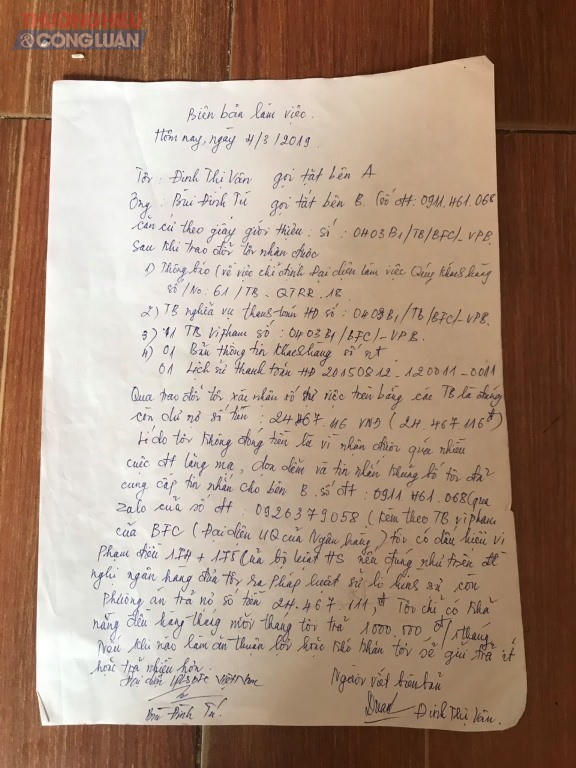 THƯƠNG HIỆU
& CÔNG LUẬN
Biên bản làm việc.
Hôm nay, ngày 4/3/2019
Tôi : Đinh Thị Vân gọi tắt bên A
Ông : Bùi Đình Tú gọi tắt bên B. (số đt: 0911.461.068
căn cứ theo giấy giới thiệu : số : 0403B1/TB/BFC/_VPB
Sau khi trao đổi tôi nhận được
1) Thông báo (về việc chỉ định Đại diện làm việc Quý khách hàng
số/No: 61/TB - QTRR.18
2) TB nghĩa vụ thanh toán HĐ số : 0403B1/TB/BFC/_VPB.
3) 01 TB vi phạm số : 0403B1/BFC/_VPB.
4) 01 Bản thông tin khách hàng số nt
01 Lịch sử thanh toán HĐ 20150812_120011_0011
Qua trao đổi tôi xác nhận số sự việc trên bằng các TB là đúng
còn dư nợ số tiền : 24.467.116 VNĐ (24.467.116đ)
Lí do tôi không đóng tiền là vì nhận được quá nhiều
cuộc đt lăng mạ, đe dọa và tin nhắn khủng bố tôi đã
cung cấp tin nhắn cho bên B. số đt : 0911 461.068 (qua
zalo của số đt : 0926379058 (kèm theo TB vi phạm
của BFC (Đại diện UQ của Ngân hàng) tôi có dấu hiệu vi
Phạm điều 174 + 175 của bộ luật HS nếu đúng như trên đề
nghị ngân hàng đưa tôi ra Pháp luật sử lí hình sự còn
Phương án trả nợ số tiền 24.467.111,đ Tôi chỉ có khả
năng đều hàng tháng mỗi tháng tôi trả 1000.000đ/1 tháng
Nếu khi nào làm ăn thuận lợi hoặc khó khăn tôi sẽ gửi trả ít
hoặc trả nhiều hơn.
Đại diện BFC Việt Nam
Người viết biên bản
Bùi Đình Tú.
Đinh Thị Vân.